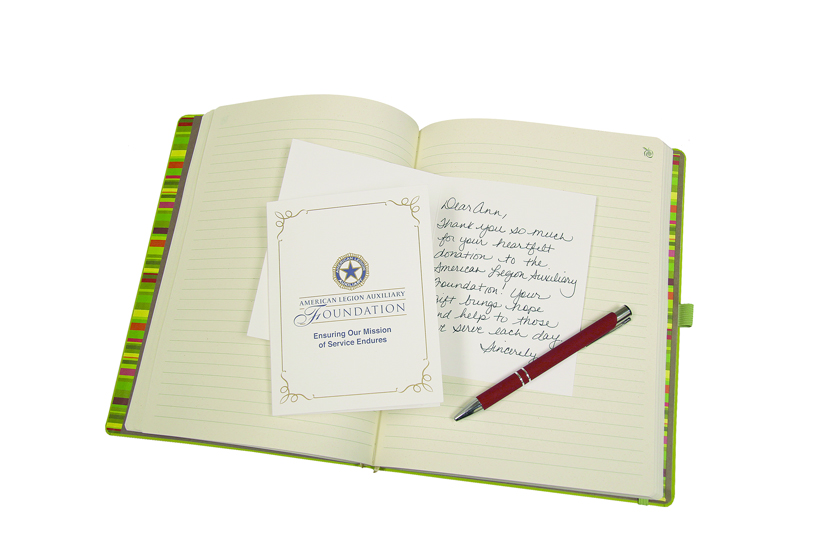 AMERICAN LEGION AUXILIARY
AMERICAN LEGION AUXILIARY
FOUNDATION
Ensuring Our Mission
of Service Endures
Dear Ann,
Thank you so much
for your heartfelt
donation to the
American Legion Auxiliary
Foundation! Your
gift brings hope
and help to those
we serve each day.
Sincerely